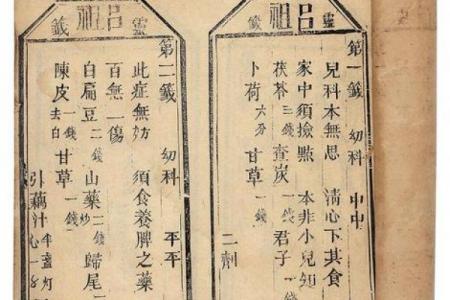 靈呂祖籤
第一籤 幼科 中中
兒科本無思 清心下其食
家中須撿點 本非小兒知
茯苓三錢 查炭一錢 君子一錢
卜荷六分 甘草一錢 二劑
靈呂祖籤
第二籤 幼科 平平
此症無妨 須食養脾之藥
百無一傷
白扁豆二錢 山藥炒二錢 歸尾一錢
陳皮去白一錢 甘草一錢
引藕汁半盞灯心一